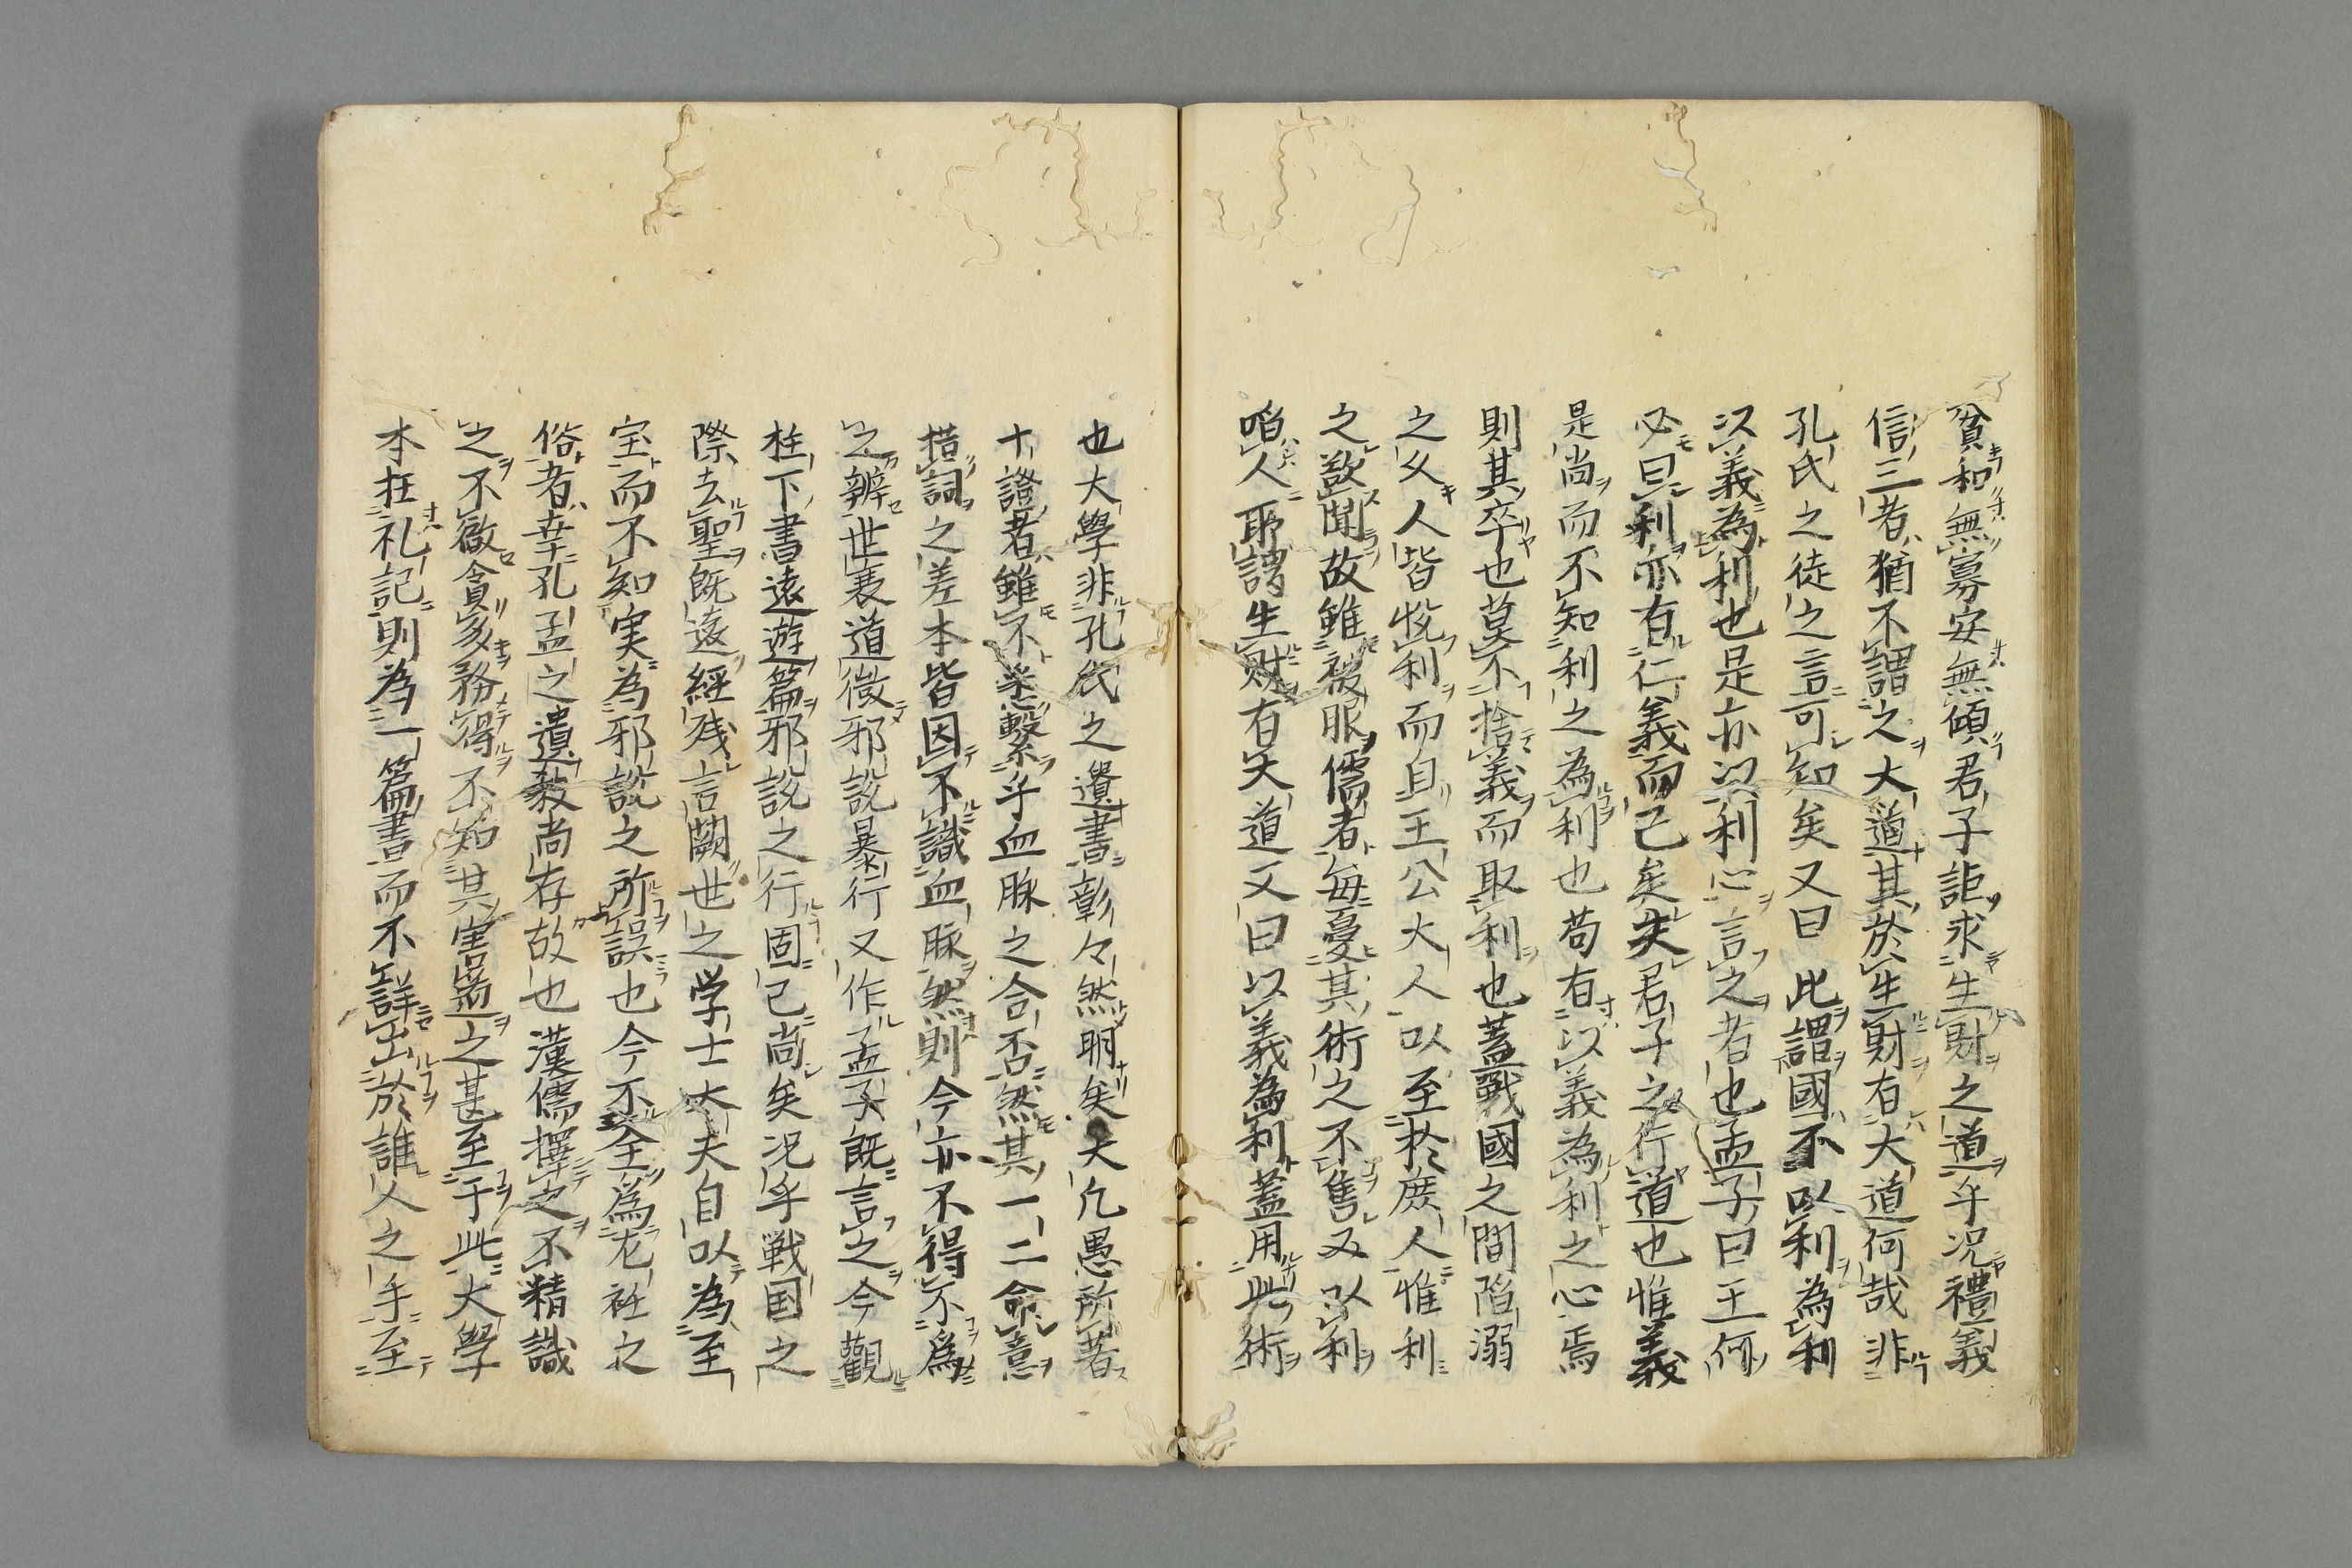 貧和無寡安無傾君子詎求生財之道乎況禮義
信三者猶不謂之大道其於生財有大道何哉非
孔氏之徒之言可知矣又曰此謂國不以利為利
以義為利也是亦以利心言之者也孟子曰王何
必曰利亦有仁義而已矣夫君子之行道也惟義
是尚而不知利之為利也苟有以義為利之心焉
則其卒也莫不捨義而取利也蓋戰國之間陷溺
之久人皆悦利而自王公大人以至於庶人惟利
之欲聞故雖被服儒者毎憂其術之不售又以利
啗人耶謂生財有大道又曰以義為利蓋用此術
也大學非孔氏之遺書彰々然明矣大凡愚所著
十證者雖不悉繫乎血脉之合否然其一二命意
措詞之差本皆因不識血脉然則今亦不得不為
之辨世衰道微邪説暴行又作孟子既言之今觀
柱下書遠遊篇邪説之行固已尚矣況乎戦国之
際去聖既遠經残言闕世之学士大夫自以為至
宝而不知実為邪説之所誤也今不全為左衽之
俗者幸孔孟之遺教尚存故也漢儒擇之不精識
之不徹貪多務得不知其害道之甚至于此大學
本在礼記則為一篇書而不詳出於誰人之手至